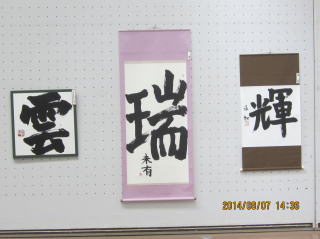 雲
瑞
未有
輝
2014/09/07 14:36